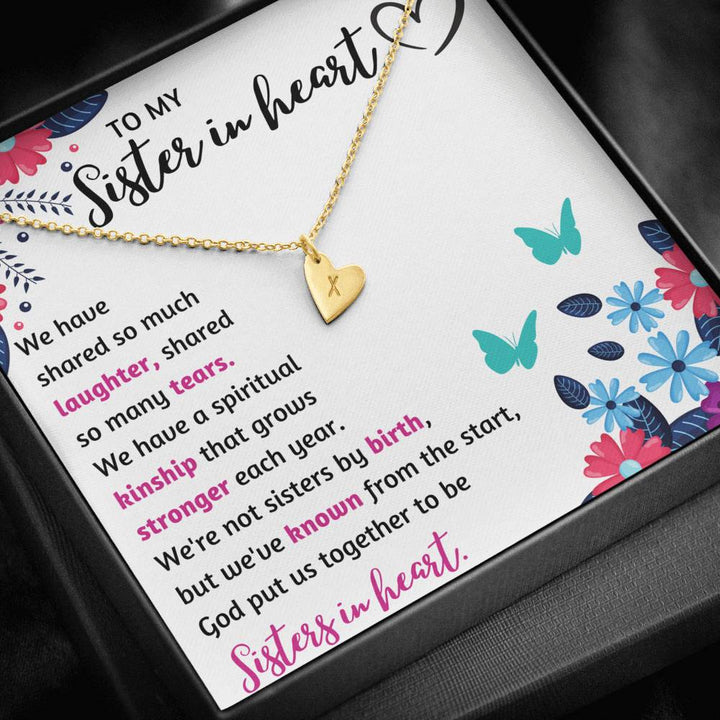 TO MY
Sister in heart
X
We have
shared so much
laughter, shared
so many tears.
We have a spiritual
kinship that grows
stronger each year.
We're not sisters by birth,
but we've known from the start,
God put us together to be
Sisters in heart.